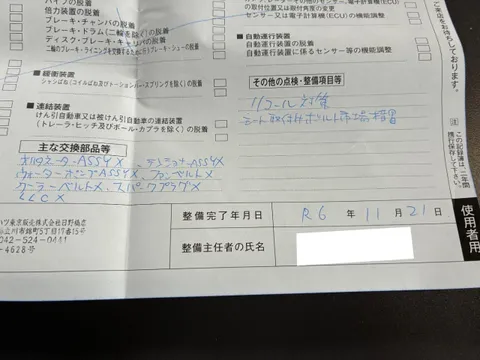 パイプの脱着
倍力装置の脱着
ブレーキ・チャンバの脱着
ブレーキ・ドラム(二輪を除く)の脱着
ディスク・ブレーキ・キャリパの脱着
(二輪のブレーキ・ライニングを交換するために行う)ブレーキ・シューの脱着
■緩衝装置
シャシばね(コイルばね及びトーションバー・スプリングを除く)の脱着
■連結装置
けん引自動車又は被けん引自動車の連結装置
(トレーラ・ヒッチ及びボール・カプラを除く)の脱着
の取付位置又は取付角度の変更
センサー又は電子計算機(ECU)の機能調整
■自動運行装置
自動運行装置の脱着
自動運行装置に係るセンサー等の機能調整
ご来店をお待ちしております。
その他の点検・整備項目等
リコール対策
シート取付けボルト
主な交換部品等
オルタネーターASSY X テンショナーASSY X
ウォーターポンプASSY X、ファンベルトX
クーラーベルトX、スパークプラグX
LLC X
注 この記録簿は、二年間携行保存して下さい。
東京販売株式会社日野橋店
立川市錦町5丁目17番15号
042-524-0441
-4628号
整備完了年月日 R6年11月21日
整備主任者の氏名
使用者用